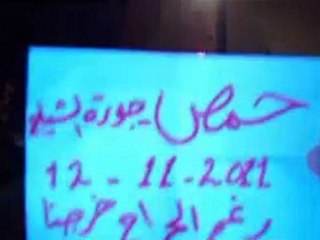 حمص جورة الشياح
12 - 11 - 2011
رغم الجراح خرجنا